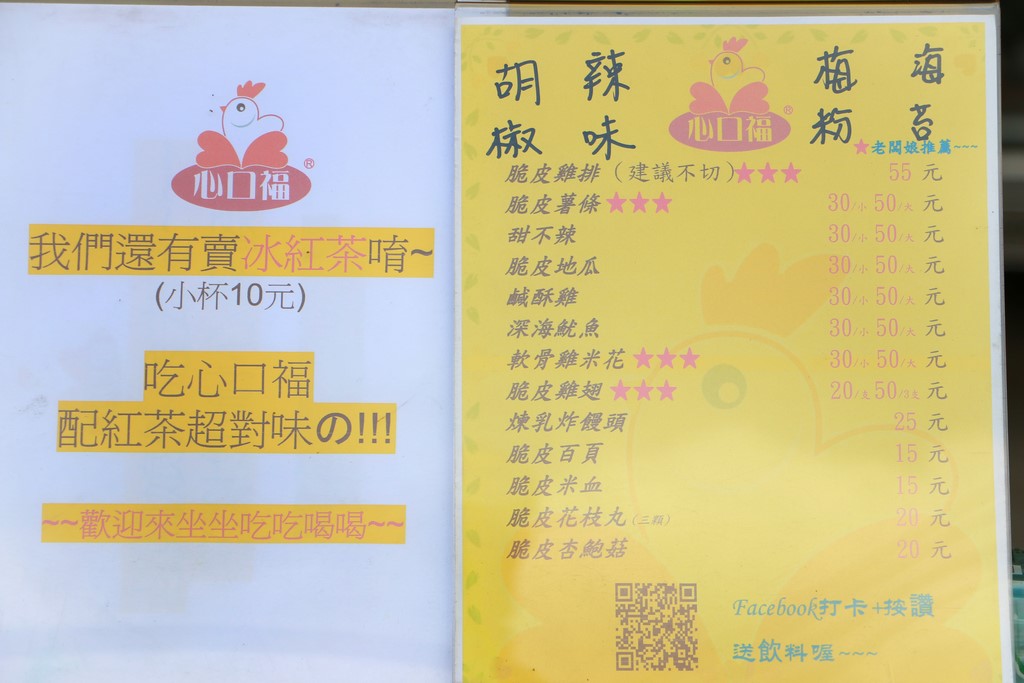 心口福®
我們還有賣冰紅茶唷~
(小杯10元)
吃心口福
配紅茶超對味の!!!
~~歡迎來坐坐吃吃喝喝~~
胡椒 辣味 心口福® 梅粉 海苔
★老闆娘推薦~~~
脆皮雞排（建議不切）★★★ 55 元
脆皮薯條★★★ 30/小 50/大 元
甜不辣 30/小 50/大 元
脆皮地瓜 30/小 50/大 元
鹹酥雞 30/小 50/大 元
深海魷魚 30/小 50/大 元
軟骨雞米花★★★ 30/小 50/大 元
脆皮雞翅★★★ 20/支 50/3支 元
煉乳炸饅頭 25 元
脆皮百頁 15 元
脆皮米血 15 元
脆皮花枝丸(三顆) 20 元
脆皮杏鮑菇 20 元
Facebook打卡+按讚
送飲料喔~~~